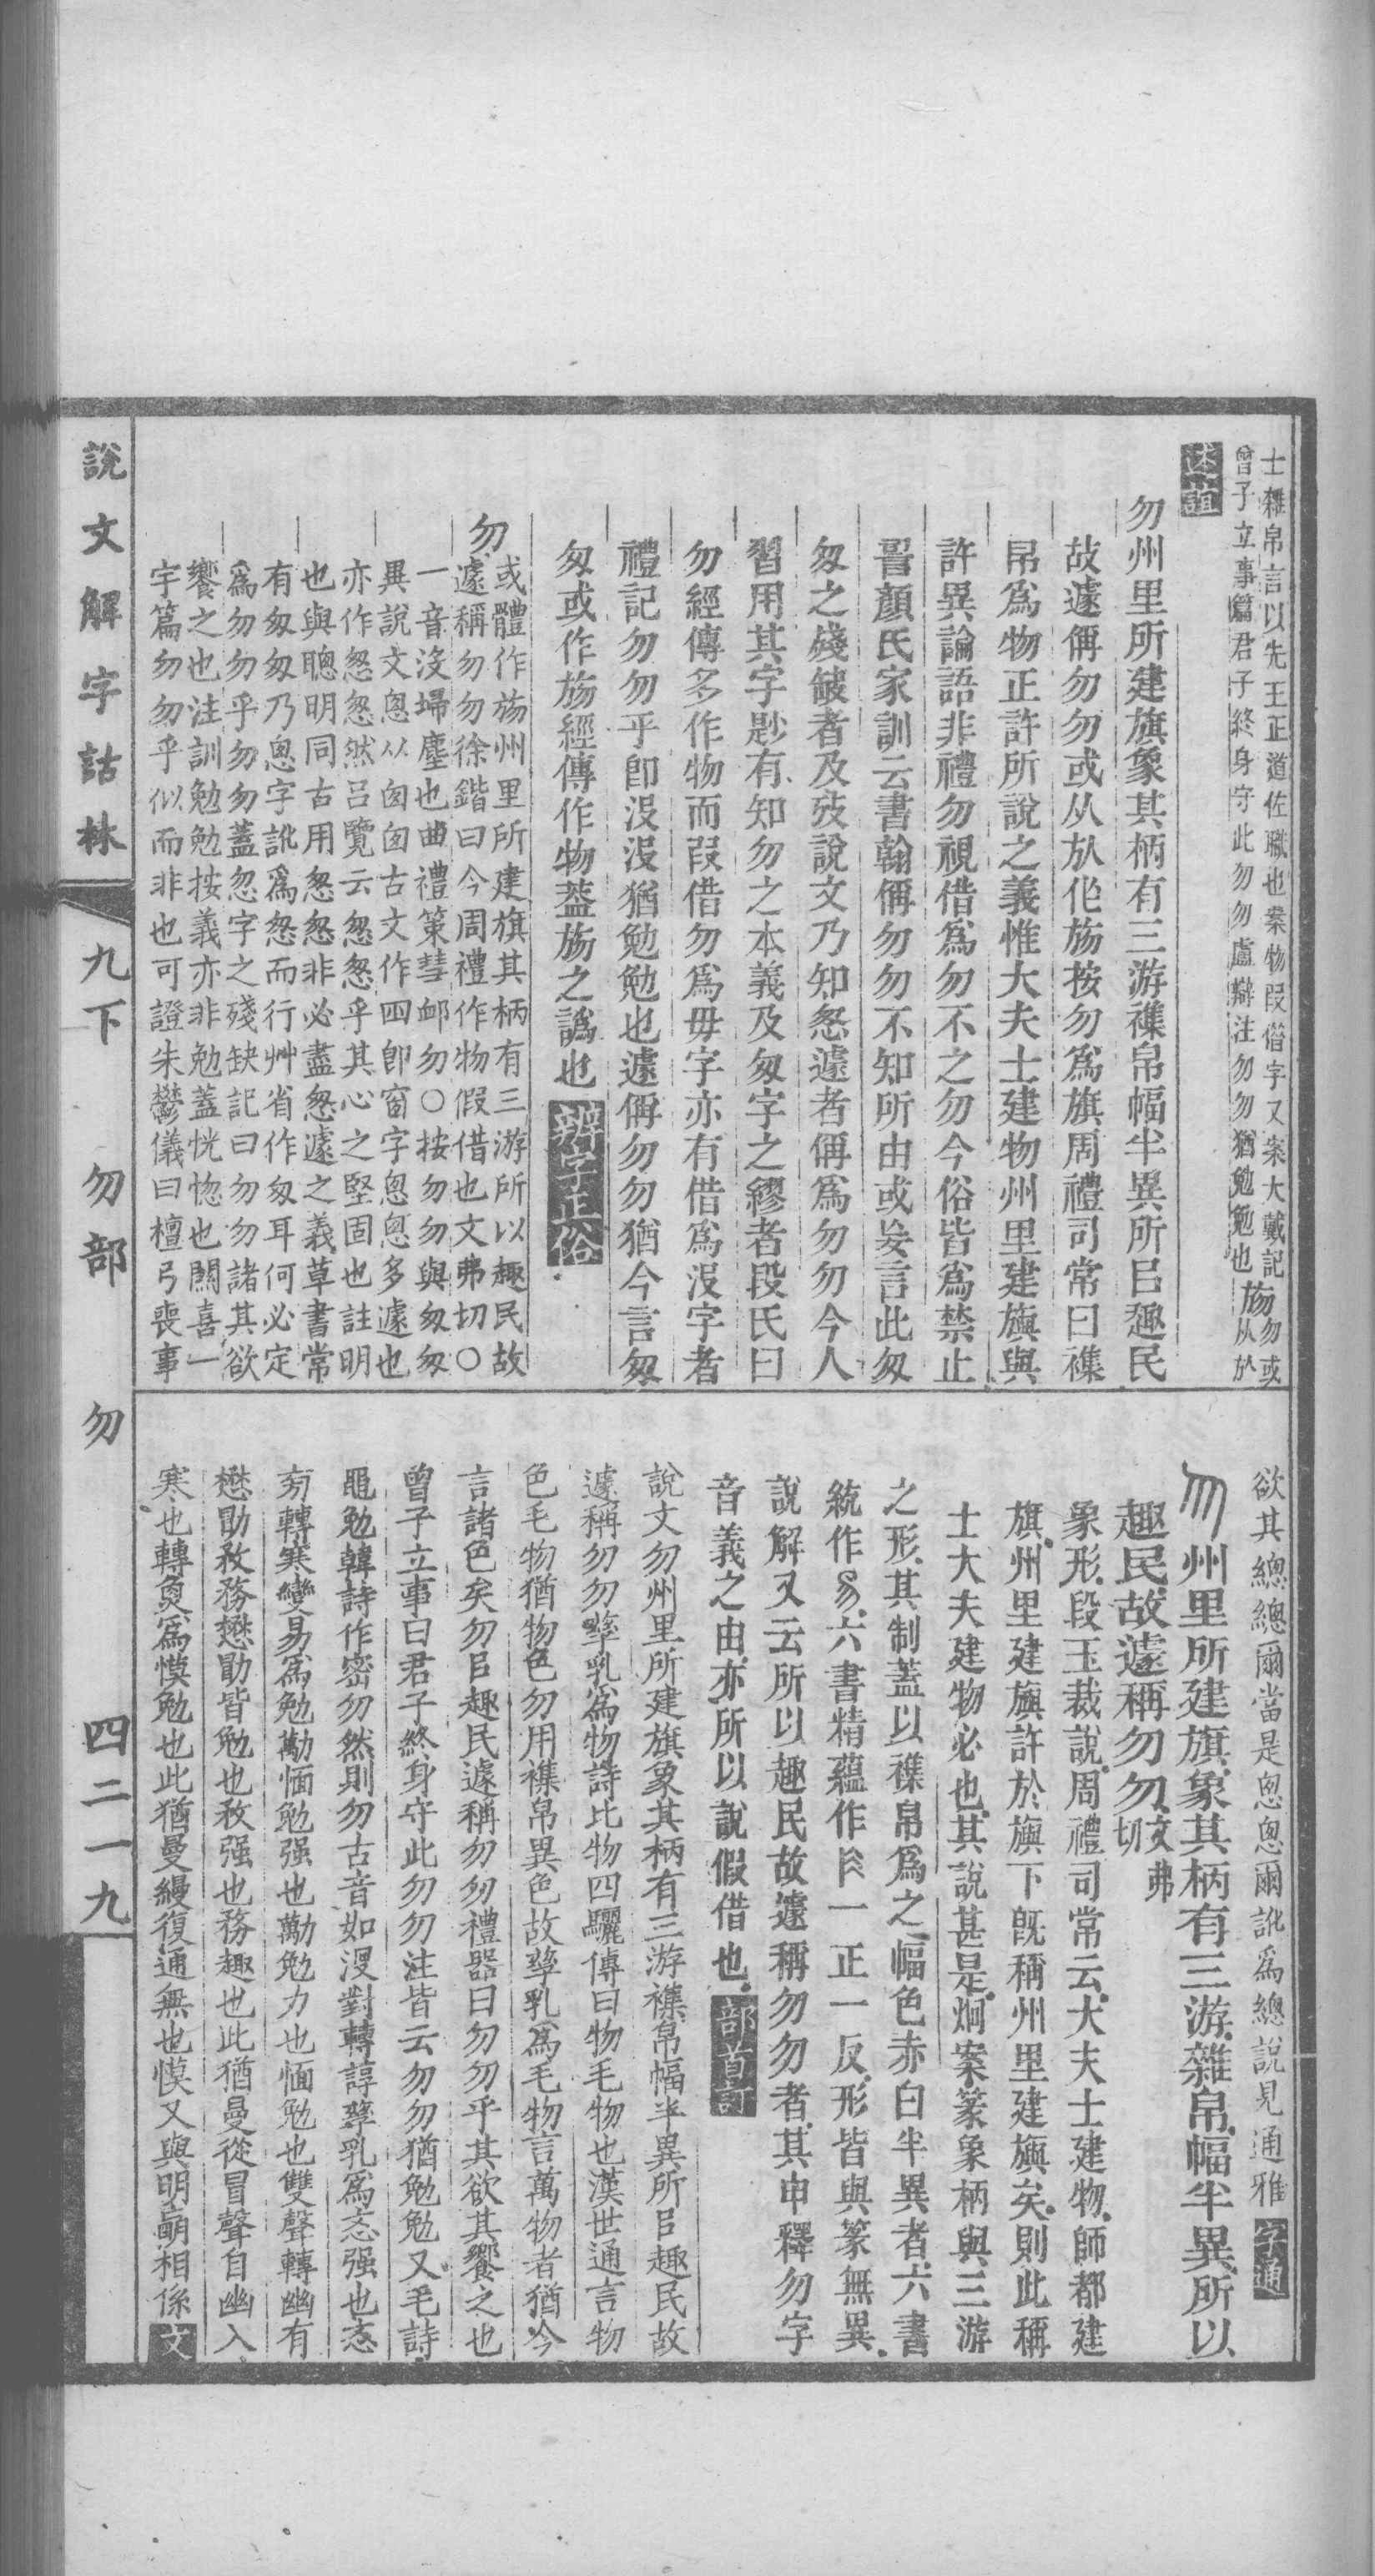 士雜帛言以先王正道佐職也案物叚借字又案大戴記
曾子立事篇君子終身守此勿勿盧辯注勿勿猶勉勉也
㫚勿或
从㫃
述誼
勿州里所建旗象其柄有三游襍帛幅半異所㠯趣民
故遽偁勿勿或从㫃作㫚按勿爲旗周禮司常曰襍
帛爲物正許所說之義惟大夫士建物州里建旟與
許異論語非禮勿視借爲勿不之勿今俗皆爲禁止
䛐顏氏家訓云書翰偁勿勿不知所由或妄言此匆
匆之殘缺者及攷說文乃知怱遽者偁爲勿勿今人
習用其字尟有知勿之本義及匆字之繆者段氏曰
勿經傳多作物而叚借勿爲毋字亦有借爲沒字者
禮記勿勿乎卽沒沒猶勉勉也遽偁勿勿猶今言匆
匆或作㫚經傳作物葢㫚之譌也
辨字正俗
勿
或體作㫚州里所建旗其柄有三游所以趣民故
遽稱勿勿徐鍇曰今周禮作物假借也文弗切〇
一音沒埽塵也曲禮策彗卹勿〇按勿勿與匆匆
異說文悤从囪囪古文作四卽窗字悤悤多遽也
亦作怱怱然呂覽云怱怱乎其心之堅固也註明
也與聰明同古用怱怱非必盡怱遽之義草書常
有匆匆乃悤字訛爲怱而行艸省作匆耳何必定
爲勿勿乎勿勿蓋忽字之殘缺記曰勿勿諸其欲
饗之也注訓勉勉按義亦非勉蓋恍惚也闕喜一
字篇勿勿乎似而非也可證朱鬱儀曰檀弓喪事
欲其總總爾當是悤悤爾訛爲總說見通雅
字通
勿州里所建旗象其柄有三游雜帛幅半異所以
趣民故遽稱勿勿文弗切
象形段玉裁說周禮司常云大夫士建物師都建
旗州里建旟許於旟下旣稱州里建旟矣則此稱
士大夫建物必也其說甚是炯案篆象柄與三游
之形其制蓋以襍帛爲之幅色赤白半異者六書
統作昜六書精蘊作一正一反形皆與篆無異
說解又云所以趣民故遽稱勿勿者其申釋勿字
音義之由亦所以說假借也
部首訂
說文勿州里所建旗象其柄有三游襍帛幅半異所㠯趣民故
遽稱勿勿孳乳爲物詩比物四驪傳曰物毛物也漢世通言物
色毛物猶物色勿用襍帛異色故孳乳爲毛物言萬物者猶今
言諸色矣勿㠯趣民遽稱勿勿禮器曰勿勿乎其欲其饗之也
曾子立事曰君子終身守此勿勿注皆云勿勿猶勉勉又毛詩
黽勉韓詩作密勿然則勿古音如沒對轉諄孳乳爲忞强也忞
旁轉寒變易爲勉勱愐勉强也勱勉力也愐勉也雙聲轉幽有
懋勖敄務懋勖皆勉也敄强也務趣也此猶曼從冒聲自幽入
寒也轉魚爲慔勉也此猶曼縵復通無也慔又與明萌相係
文
說文解字詁林
九下
勿部
勿
四二一九